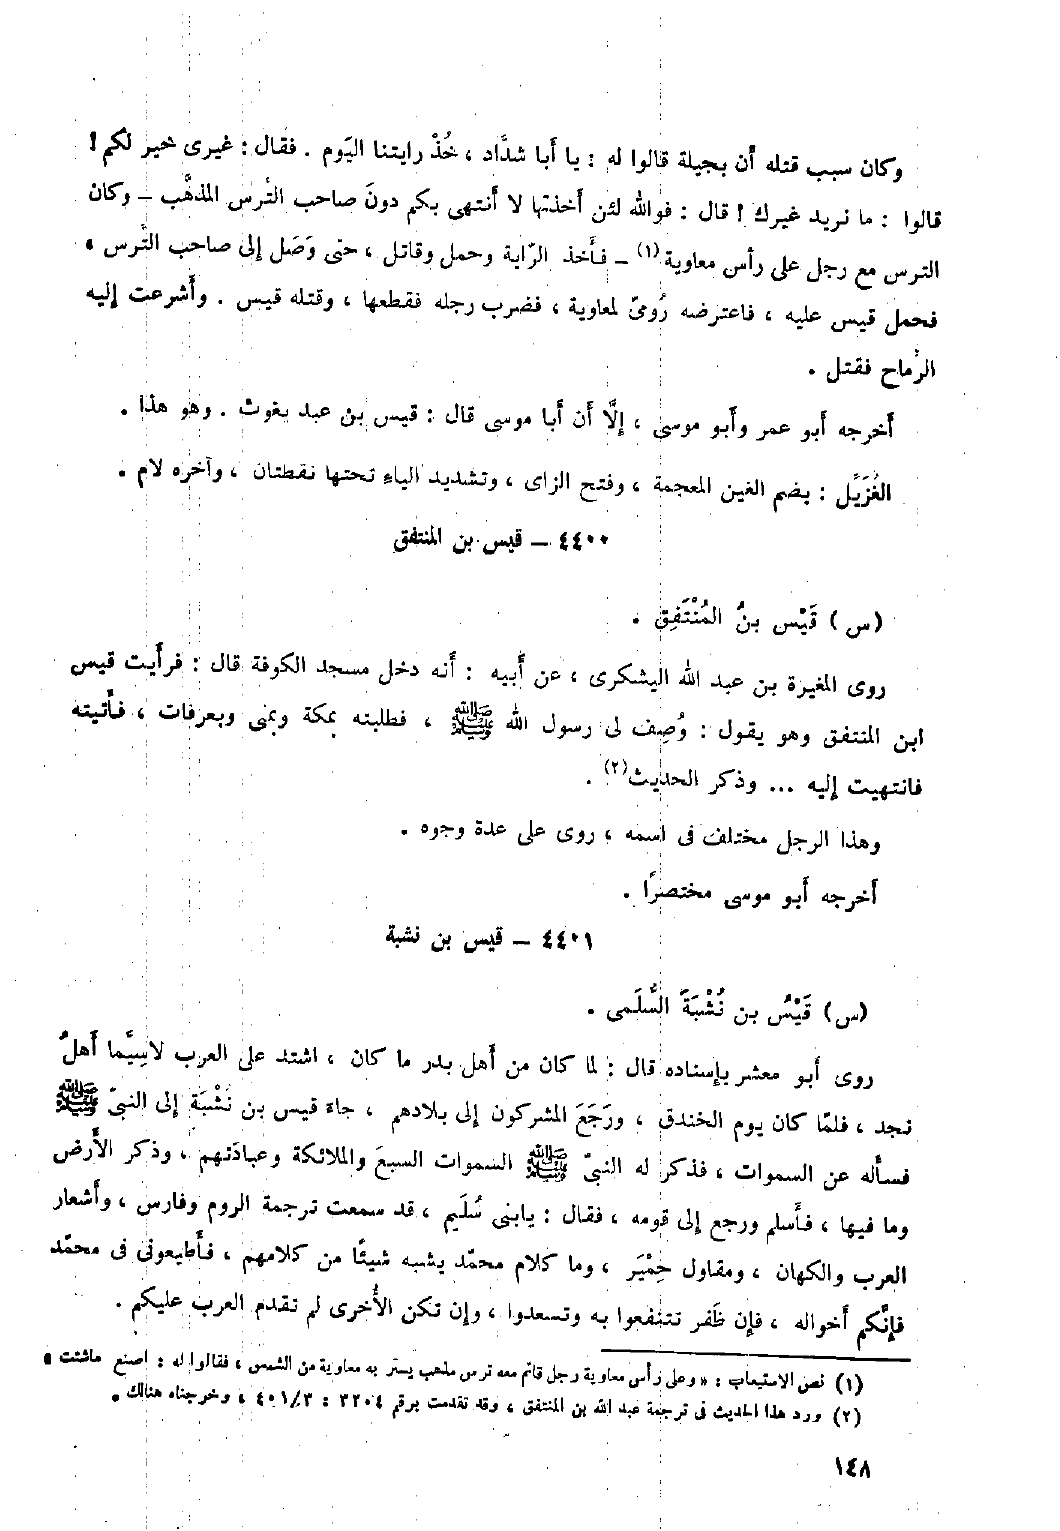 وكان سبب قتله أن بجيلة قالوا له : يا أبا شدَّاد ، خُذْ رايتنا اليَوم . فقال : غيرى خير لكم !
قالوا : ما نريد غيرك ! قال : فوالله لئن أخذتها لا أنتهى بكم دونَ صاحب التُرس المذهَّب – وكان
الترس مع رجل على رأس معاوية (١) – فأَخذ الرّاية وحمل وقاتل ، حتى وَصَل إلى صاحب التُرس ،
فحمل قيس عليه ، فاعترضه رُومىّ لمعاوية ، فضرب رجله فقطعها ، وقتله قيس . وأَشرعت إليه
الرِّماح فقتل .
أَخرجه أَبو عمر وأَبو موسى ، إلَّا أَن أَبا موسى قال : قيس بن عبد يغوث . وهو هذا .
الغُزَيِّل : بضم الغين المعجمة ، وفتح الزاى ، وتشديد الياءِ تحتها نقطتان ، وآخره لام .
٤٤٠٠ – قيس بن المنتفق
(س) قَيْس بنُ المُنْتَفِق .
روى المغيرة بن عبد الله اليشكرى ، عن أَبيه : أَنه دخل مسجد الكوفة قال : فرأَيت قيس
ابن المنتفق وهو يقول : وُصِف لى رسول الله ﷺ ، فطلبته بمكة وبمنى وبعرفات ، فأَتيته
فانتهيت إليه ... وذكر الحديث (٢) .
وهذا الرجل مختلف فى اسمه ، روى على عدة وجوه .
أَخرجه أَبو موسى مختصرًا .
٤٤٠١ – قيس بن نشبة
(س) قَيْسُ بن نُشْبَةَ السُّلَمى .
روى أَبو معشر بإسناده قال : لما كان من أَهل بدر ما كان ، اشتد على العرب لاسِيَّما أَهلُ
نجد ، فلمّا كان يوم الخندق ، ورَجَعَ المشركون إلى بلادهم ، جاءَ قيس بن نُشْبَة إلى النبىّ ﷺ
فسأَله عن السموات ، فذكر له النبىّ ﷺ السموات السبعَ والملائكة وعبادَتهم ، وذكر الأَرض
وما فيها ، فأَسلم ورجع إلى قومه ، فقال : يابنى سُلَيم ، قد سمعت ترجمة الروم وفارس ، وأَشعار
العرب والكهان ، ومقاول حِمْيَر ، وما كلام محمّد يشبه شيئًا من كلامهم ، فأَطيعونى فى محمّد
فإنَّكم أَخواله ، فإن ظَفر تنتفعوا به وتسعدوا ، وإن تكن الأُخرى لم تقدم العرب عليكم .
(١) نص الاستيعاب : « وعلى رأس معاوية رجل قائم معه ترس مذهب يستر به معاوية من الشمس ، فقالوا له : اصنع ماشئت »
(٢) ورد هذا الحديث فى ترجمة عبد الله بن المنتفق ، وقد تقدمت برقم ٣٢٠٤ : ٤٠١/٣ ، وخرجناه هنالك .
١٤٨